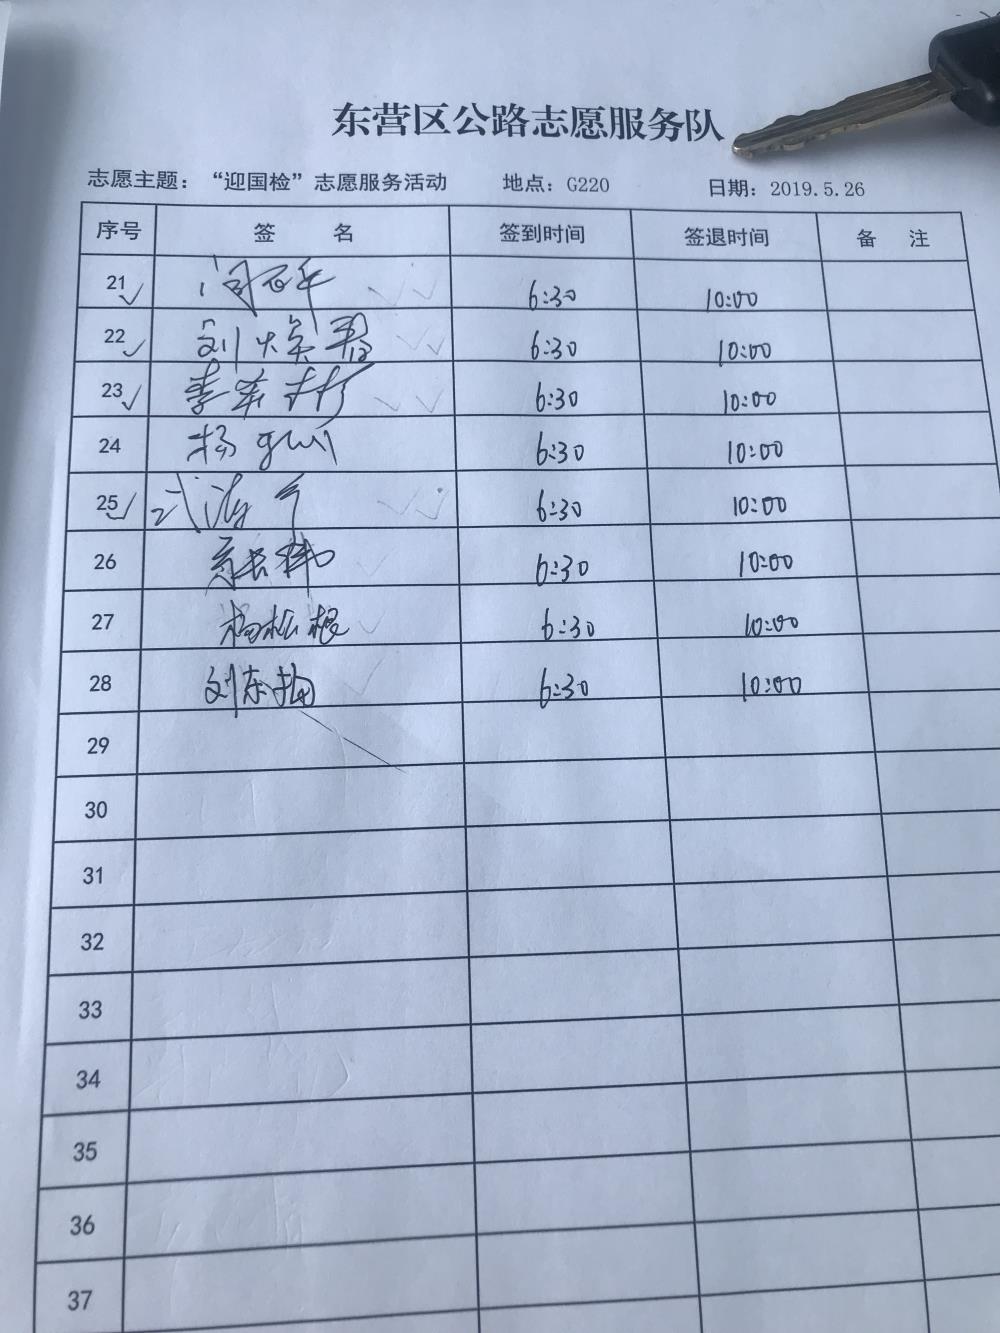 东营区公路志愿服务队
志愿主题：“迎国检”志愿服务活动 地点：G220 日期：2019.5.26
序号 签 名 签到时间 签退时间 备 注
21 6:30 10:00
22 刘 6:30 10:00
23 李 6:30 10:00
24 杨 6:30 10:00
25 武 6:30 10:00
26 6:30 10:00
27 杨松根 6:30 10:00
28 刘东 6:30 10:00
29
30
31
32
33
34
35
36
37